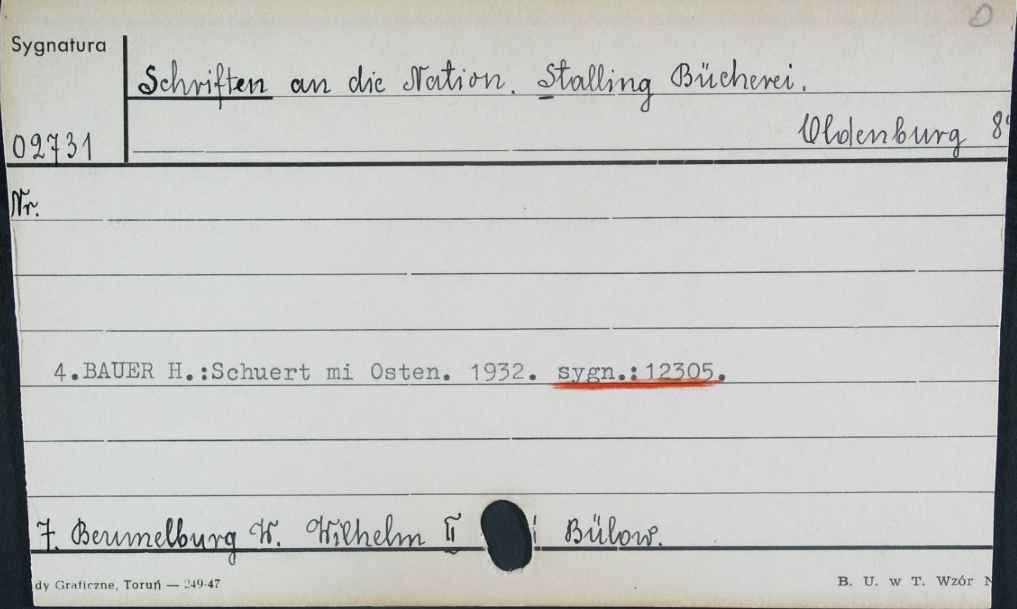 D
Sygnatura
Schriften an die Nation. Stalling Bücherei.
Oldenburg 8°
02731
Nr.
4.BAUER H.:Schuert mi Osten. 1932. sygn.:12305.
7. Beumelburg W. Wilhelm II i Bülow.
dy Graficzne, Toruń — 249-47
B. U. w T. Wzór N